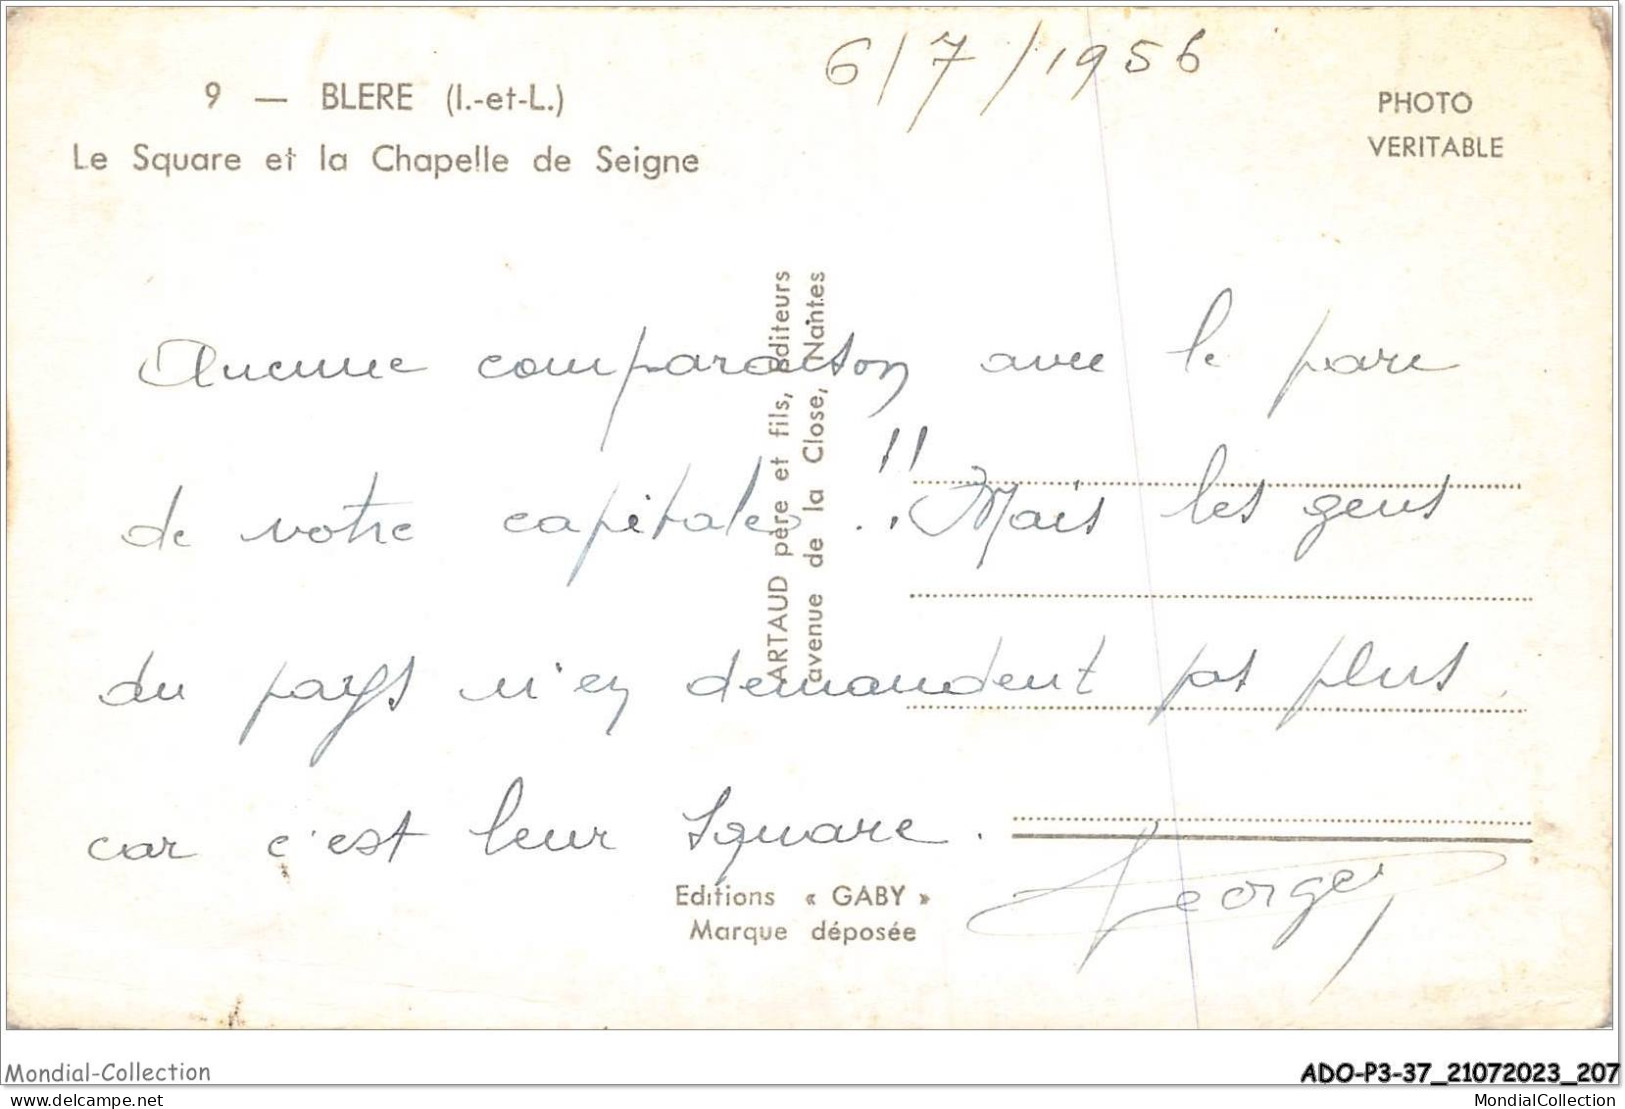 6/7/1956
9 — BLERE (I.-et-L.)
Le Square et la Chapelle de Seigne
PHOTO
VERITABLE
Aucune comparaison avec le parc
de votre capitale..!! Mais les gens
du pays n'en demandent pas plus,
car c'est leur square.
Georges
ARTAUD père et fils, Editeurs
avenue de la Close, Nantes
Editions « GABY »
Marque déposée
Mondial-Collection
ADO-P3-37_21072023_207
delcampe.net
MondialCollection